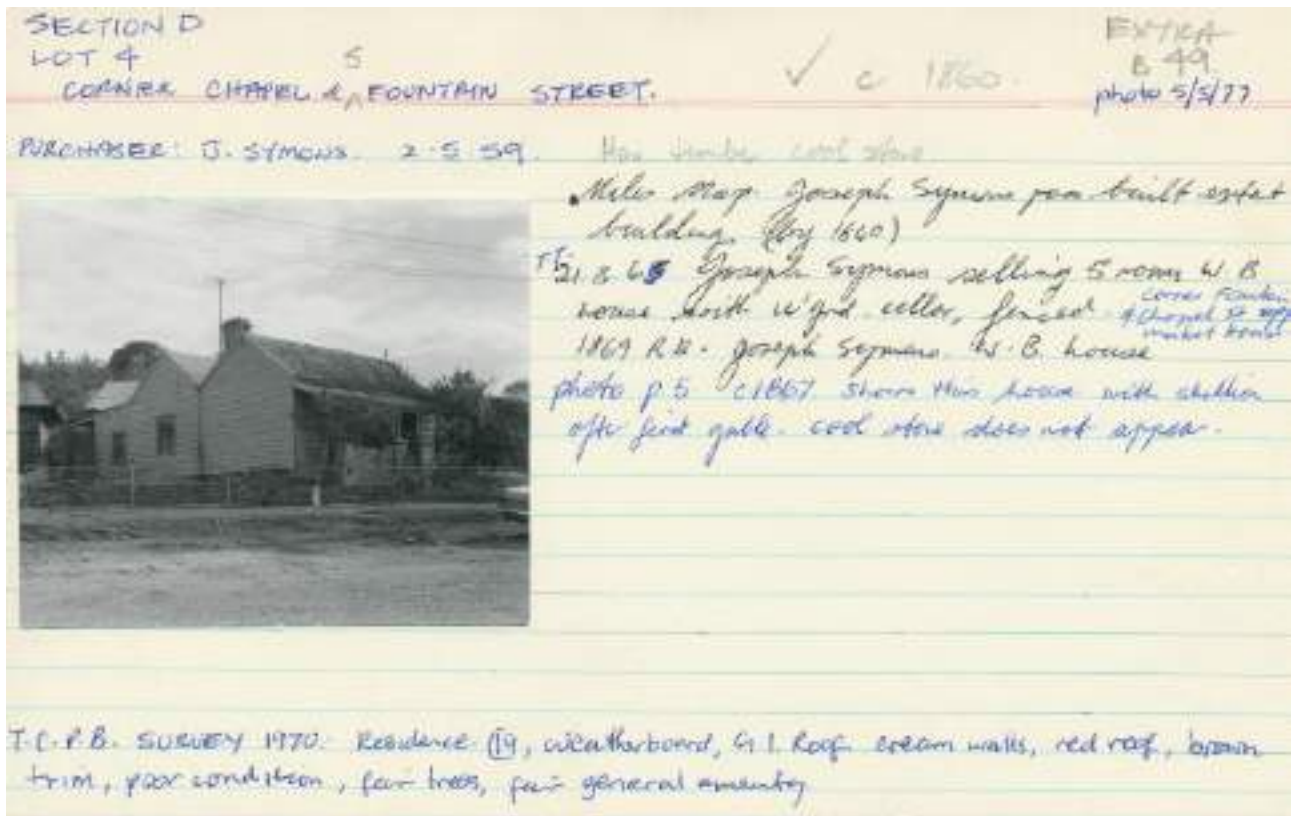 SECTION D
LOT 4
5
CORNER CHAPEL & FOUNTAIN STREET.
✓ c 1860.
EXTRA
B 49
photo 5/5/77
PURCHASER: J. SYMONS. 2.5.59.
Has timber cool store
. Miles Map. Joseph Symons built extant
building, (by 1860)
21.8.65 Joseph Symons selling 5 room W.B
house with cellar, fenced
corner Fountain
& Chapel St opp
market house
1869 R.B. Joseph Symons. W.B. house
photo p.5 c1867. Shows this house with skillion
after first gable. cool store does not appear.
T.C.P.B. SURVEY 1970. Residence, weatherboard, G.I. Roof cream walls, red roof, brown
trim, poor condition, few trees, fair general amenity